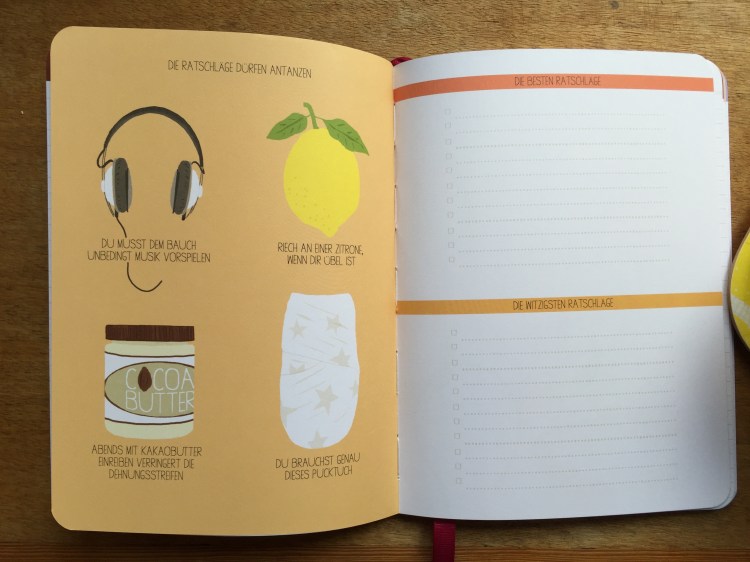 DIE RATSCHLÄGE DÜRFEN ANTANZEN
DU MUSST DEM BAUCH
UNBEDINGT MUSIK VORSPIELEN
RIECH AN EINER ZITRONE,
WENN DIR ÜBEL IST
COCOA
BUTTER
ABENDS MIT KAKAOBUTTER
EINREIBEN VERRINGERT DIE
DEHNUNGSSTREIFEN
DU BRAUCHST GENAU
DIESES PUCKTUCH
DIE BESTEN RATSCHLÄGE
DIE WITZIGSTEN RATSCHLÄGE